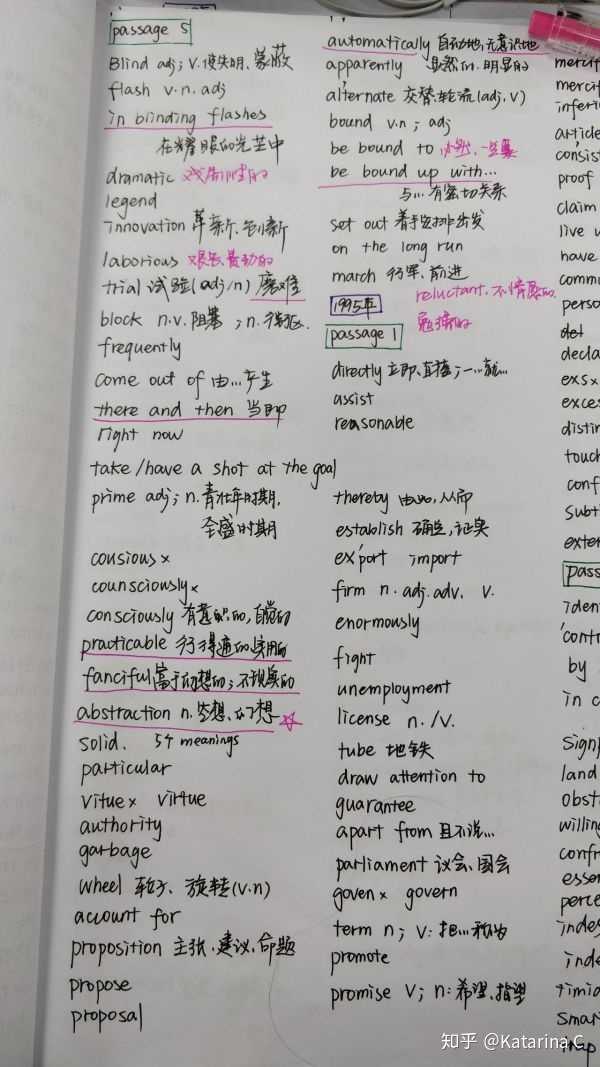 passage 5
Blind adj; v.使失明、蒙蔽
flash v.n.adj
in blinding flashes
在耀眼的光芒中
dramatic 戏剧性的
legend
innovation 革新、创新
laborious 艰苦、费劲的
trial 试验(adj/n) 磨难
block n.v.阻塞 ; n.街区.
frequently
come out of 由...产生
there and then 当即
right now
take/have a shot at the goal
prime adj; n.青壮年时期,
全盛时期
cousious ×
counsciously ×
consciously 有意识的,自觉的
practicable 行得通的、实用的
fanciful 富于幻想的; 不现实的
abstraction n.空想、幻想 ☆
solid. 54 meanings
particular
vitue × virtue
authority
garbage
wheel 轮子、旋转(v.n)
account for
proposition 主张、建议、命题
propose
proposal
automatically 自动地,无意识地
apparently 显然的、明显的
alternate 交替,轮流(adj,v)
bound v.n ; adj
be bound to 必然、一定要
be bound up with...
与...有密切关系
set out 着手,安排,出发
on the long run
march 行军、前进
reluctant、不情愿的,
勉强的
1995年
passage 1
directly 立即、直接; 一...就...
assist
reasonable
thereby 由此,从而
establish 确立,证实
export import
firm n.adj.adv. v.
enormously
fight
unemployment
license n./v.
tube 地铁
draw attention to
guarantee
apart from 且不说...
parliament 议会、国会
goven × govern
term n; v: 把...称为
promote
promise v; n: 希望、指望
inferi
article
consist
proof
claim
live
have
commu
perso
del
decla
exs×
exces
distin
touch
conf
subt
exter
pass
iden
contr
by
in c
signi
land
obst
willin
confr
essen
perce
indes
inde
timid
smar
知乎 @Katarina.C